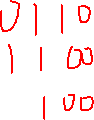 0110
1100
100